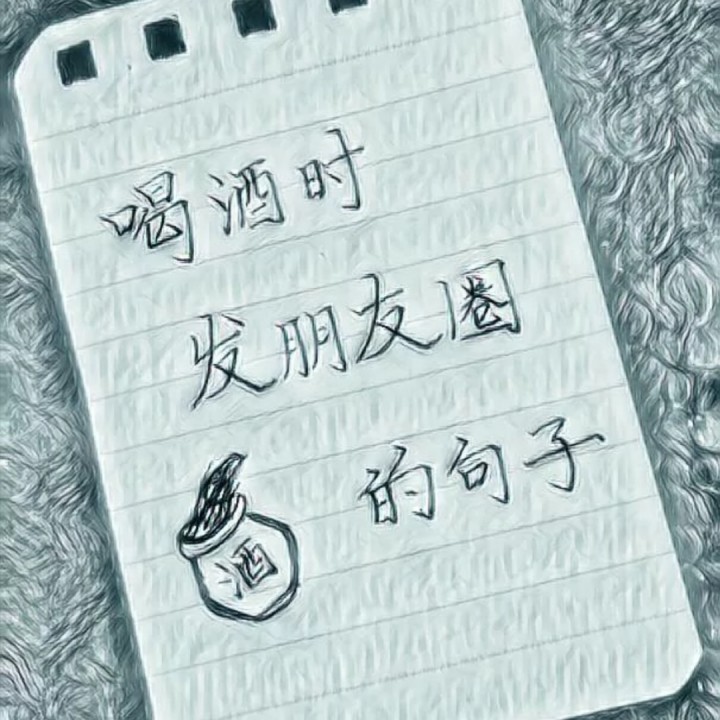 喝酒时
发朋友圈
的句子
酒